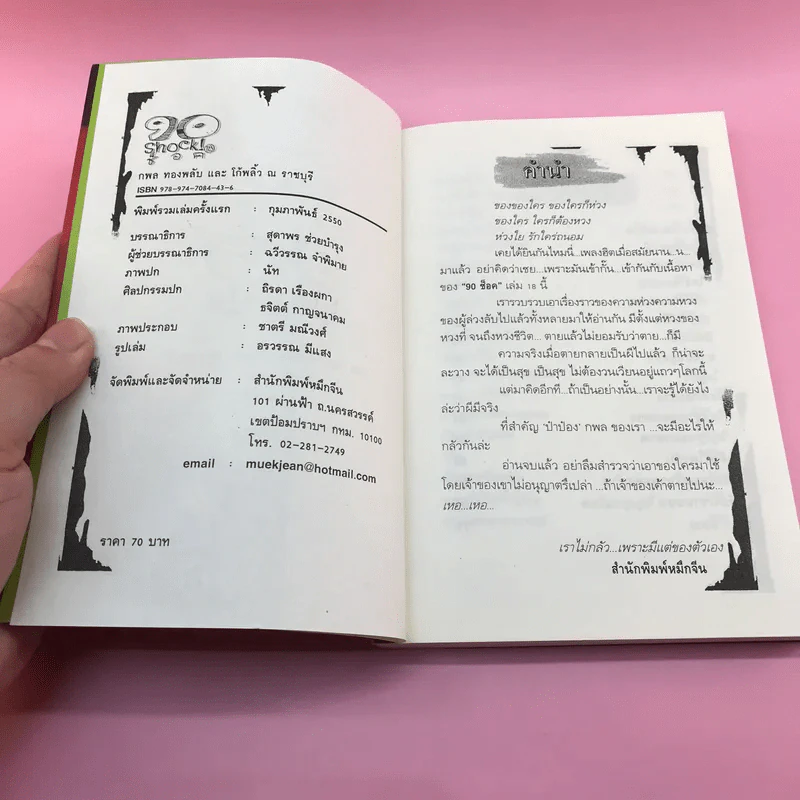 90
Shock!
ช็อค
กพล ทองพลับ และ โก้พลิ้ว ณ ราชบุรี
ISBN 978-974-7084-43-6
พิมพ์รวมเล่มครั้งแรก : กุมภาพันธ์ 2550
บรรณาธิการ : สุดาพร ช่วยบำรุง
ผู้ช่วยบรรณาธิการ : ฉวีวรรณ จำพิมาย
ภาพปก : นัท
ศิลปกรรมปก : ถิรดา เรืองผกา
ธจิตต์ กาญจนาคม
ภาพประกอบ : ชาตรี มณีวงศ์
รูปเล่ม : อรวรรณ มีแสง
จัดพิมพ์และจัดจำหน่าย : สำนักพิมพ์หมึกจีน
101 ผ่านฟ้า ถ.นครสวรรค์
เขตป้อมปราบฯ กทม. 10100
โทร. 02-281-2749
email : muekjean@hotmail.com
ราคา 70 บาท
คำนำ
ของของใคร ของใครก็ห่วง
ของใคร ใครก็ต้องหวง
ห่วงใย รักใคร่ถนอม
เคยได้ยินกันไหมนี่...เพลงฮิตเมื่อสมัยนาน...น...
มาแล้ว อย่าคิดว่าเชย...เพราะมันเข้ากั๊น...เข้ากันกับเนื้อหา
ของ "90 ช็อค" เล่ม 18 นี้
เรารวบรวบเอาเรื่องราวของความห่วงความหวง
ของผู้ล่วงลับไปแล้วทั้งหลายมาให้อ่านกัน มีตั้งแต่หวงของ
หวงที่ จนถึงหวงชีวิต... ตายแล้วไม่ยอมรับว่าตาย...ก็มี
ความจริงเมื่อตายกลายเป็นผีไปแล้ว ก็น่าจะ
ละวาง จะได้เป็นสุข เป็นสุข ไม่ต้องวนเวียนอยู่แถวๆโลกนี้
แต่มาคิดอีกที...ถ้าเป็นอย่างนั้น...เราจะรู้ได้ยังไง
ล่ะว่าผีมีจริง
ที่สำคัญ 'ป๋าป๋อง' กพล ของเรา ...จะมีอะไรให้
กลัวกันล่ะ
อ่านจบแล้ว อย่าลืมสำรวจว่าเอาของใครมาใช้
โดยเจ้าของเขาไม่อนุญาตรึเปล่า ...ถ้าเจ้าของเค้าตายไปนะ...
เหอ...เหอ...
เราไม่กลัว...เพราะมีแต่ของตัวเอง
สำนักพิมพ์หมึกจีน